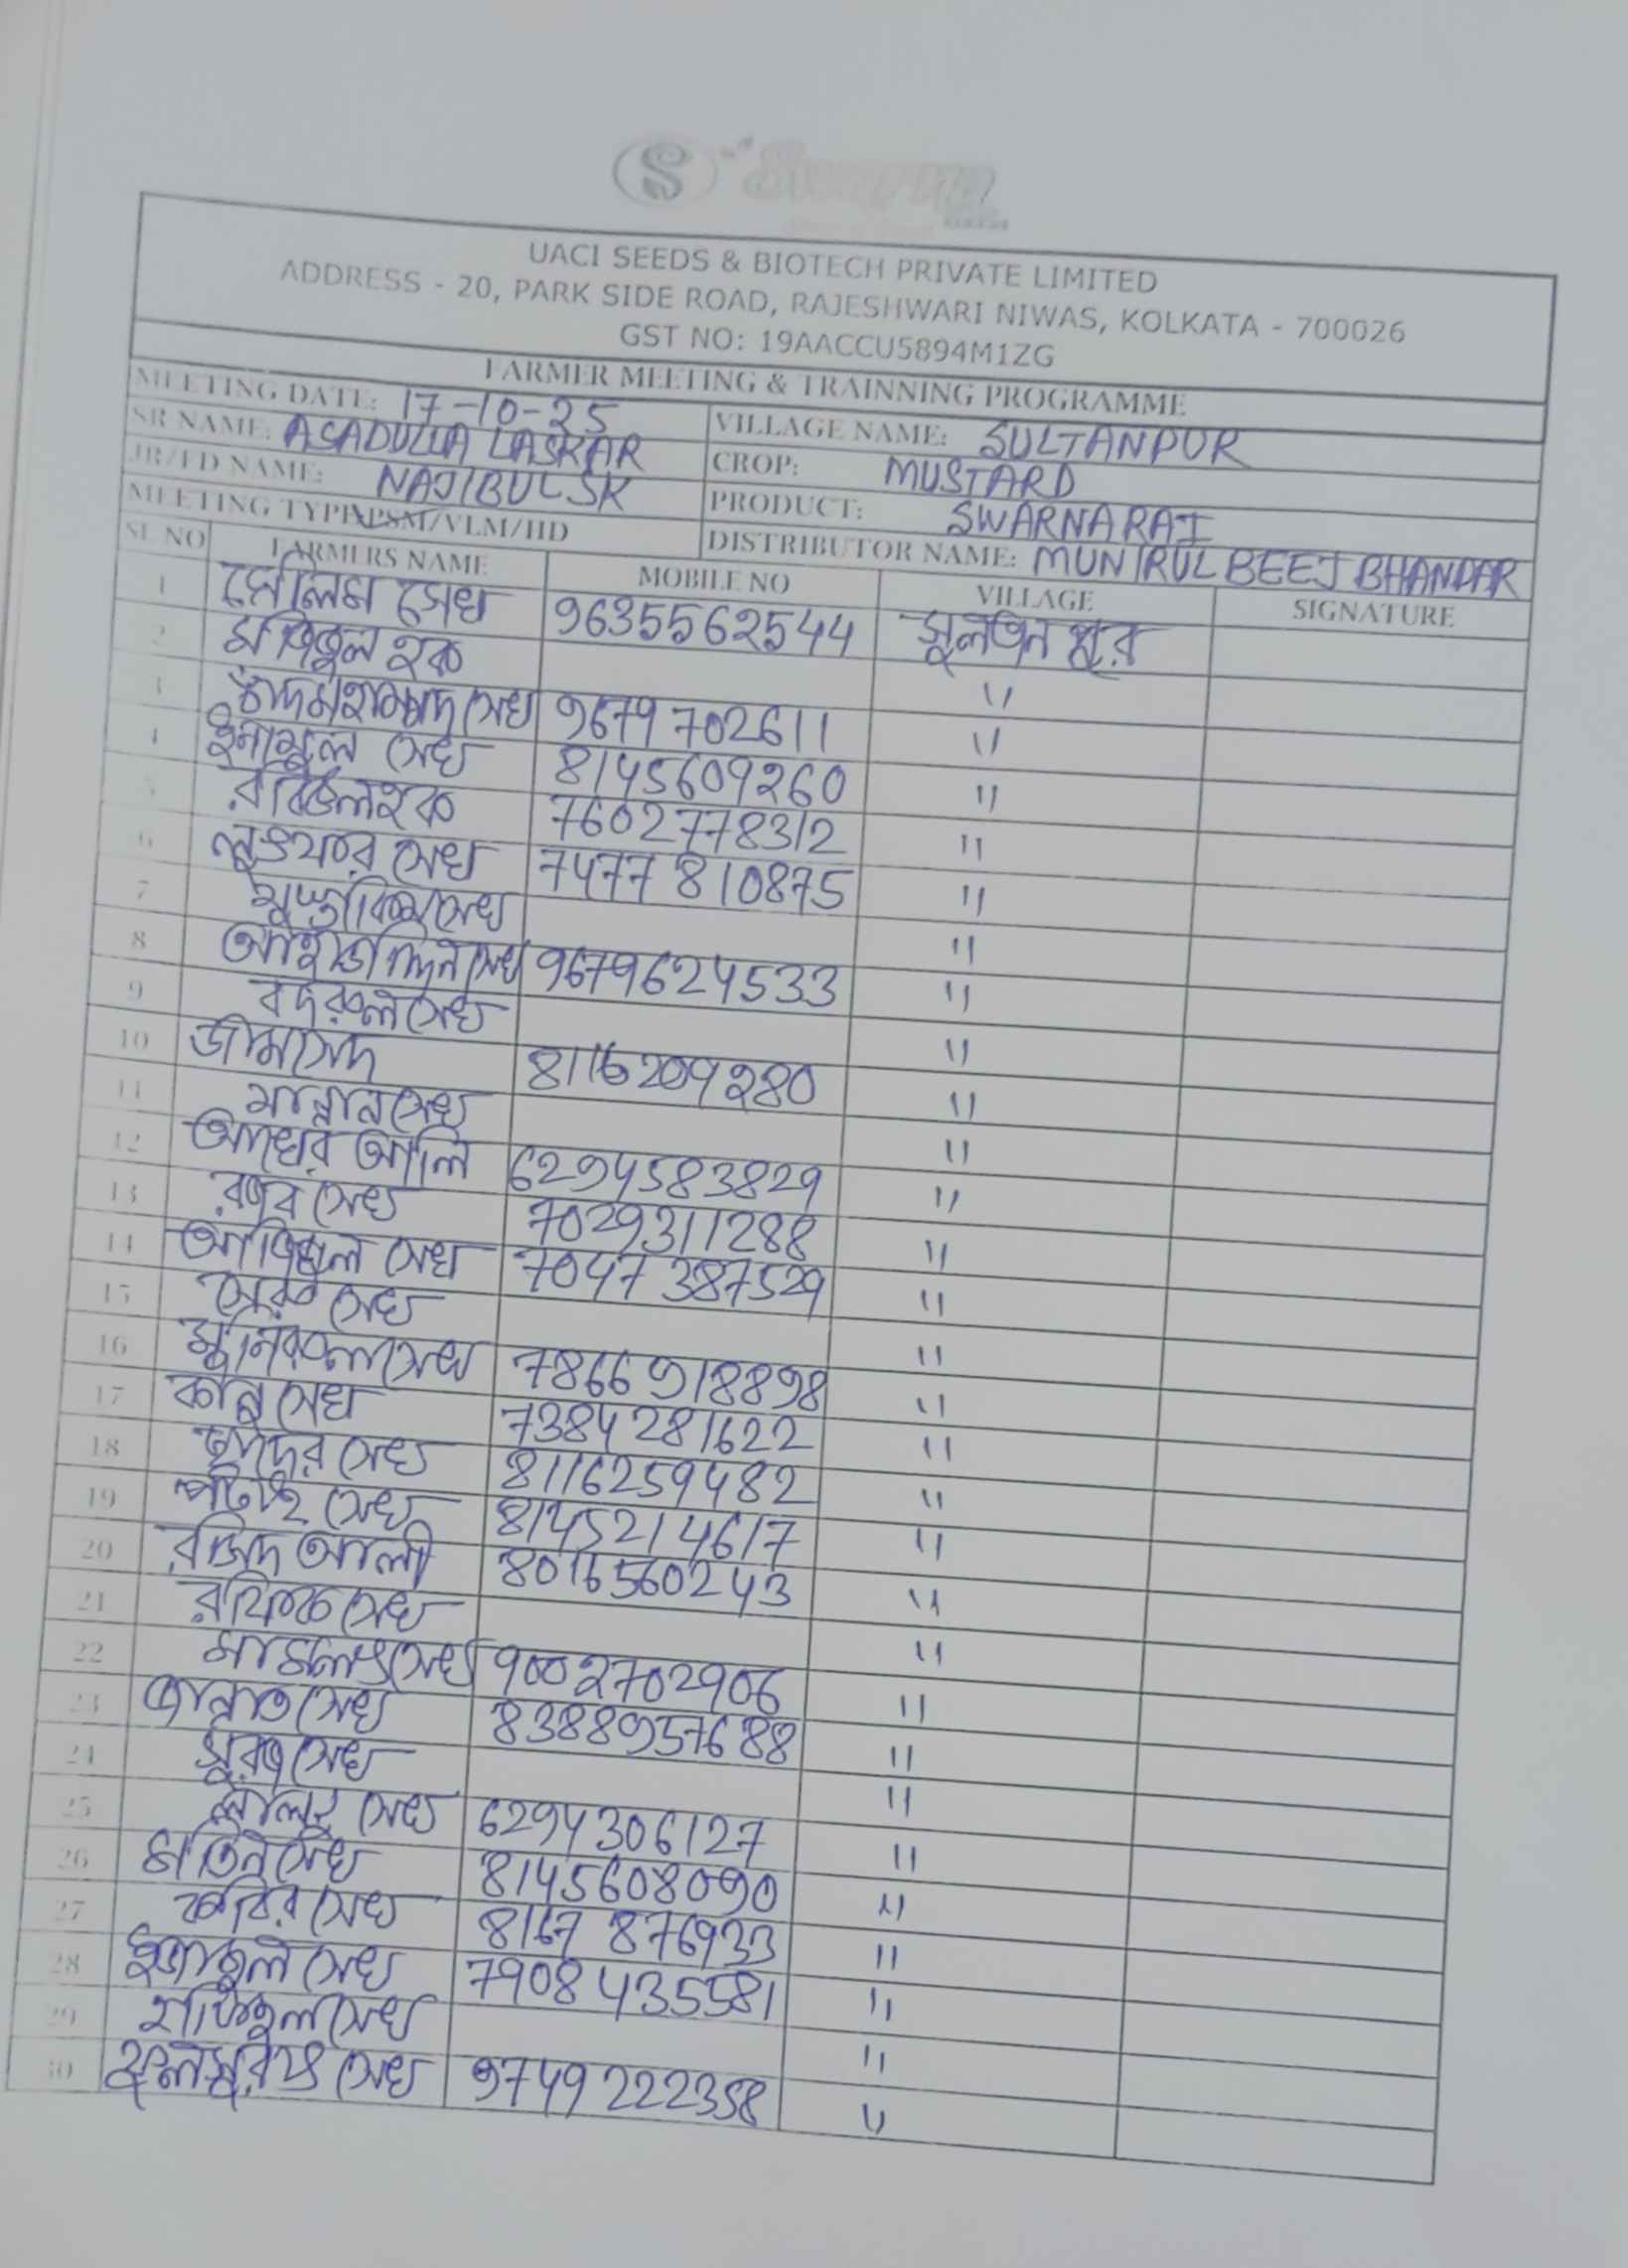 S Swarna
UACI SEEDS & BIOTECH PRIVATE LIMITED
ADDRESS - 20, PARK SIDE ROAD, RAJESHWARI NIWAS, KOLKATA - 700026
GST NO: 19AACCU5894M1ZG
FARMER MEETING & TRAINNING PROGRAMME
MEETING DATE: 17-10-25 VILLAGE NAME: SULTANPUR
SR NAME: ASADULLA LASKAR CROP: MUSTARD
JR/FD NAME: NAJIBUL SK PRODUCT: SWARNA RAI
MEETING TYPE: PSM/VLM/HD DISTRIBUTOR NAME: MUNIRUL BEEJ BHANDAR
SL NO FARMERS NAME MOBILE NO VILLAGE SIGNATURE
1 সেলিম সেখ 9635562544 সুলতানপুর
2 মফিজুল হক "
3 সেখ 9679702611 "
4 ইনামুল সেখ 8145609260 "
5 রবিউল হক 7602778312 "
6 লুৎফার সেখ 7477810875 "
7 সেখ "
8 সেখ 9679624533 "
9 বদরুল সেখ "
10 জামসেদ 8116209280 "
11 মান্নান সেখ "
12 আখের আলি 6294583829 "
13 রজব সেখ 7029311288 "
14 সেখ 7047387529 "
15 সেখ "
16 মনিরুল সেখ 7866918898 "
17 কালু সেখ 7384281622 "
18 সেখ 8116259482 "
19 সেখ 8145214617 "
20 আলী 8016560243 "
21 রফিক সেখ "
22 সেখ 9002702906 "
23 জান্নাত সেখ 8388957688 "
24 সুরজ সেখ "
25 সেখ 6294306127 "
26 মতিন সেখ 8145608090 "
27 কবির সেখ 8167876933 "
28 সেখ 7908435581 "
29 সেখ "
30 সেখ 9749222358 "